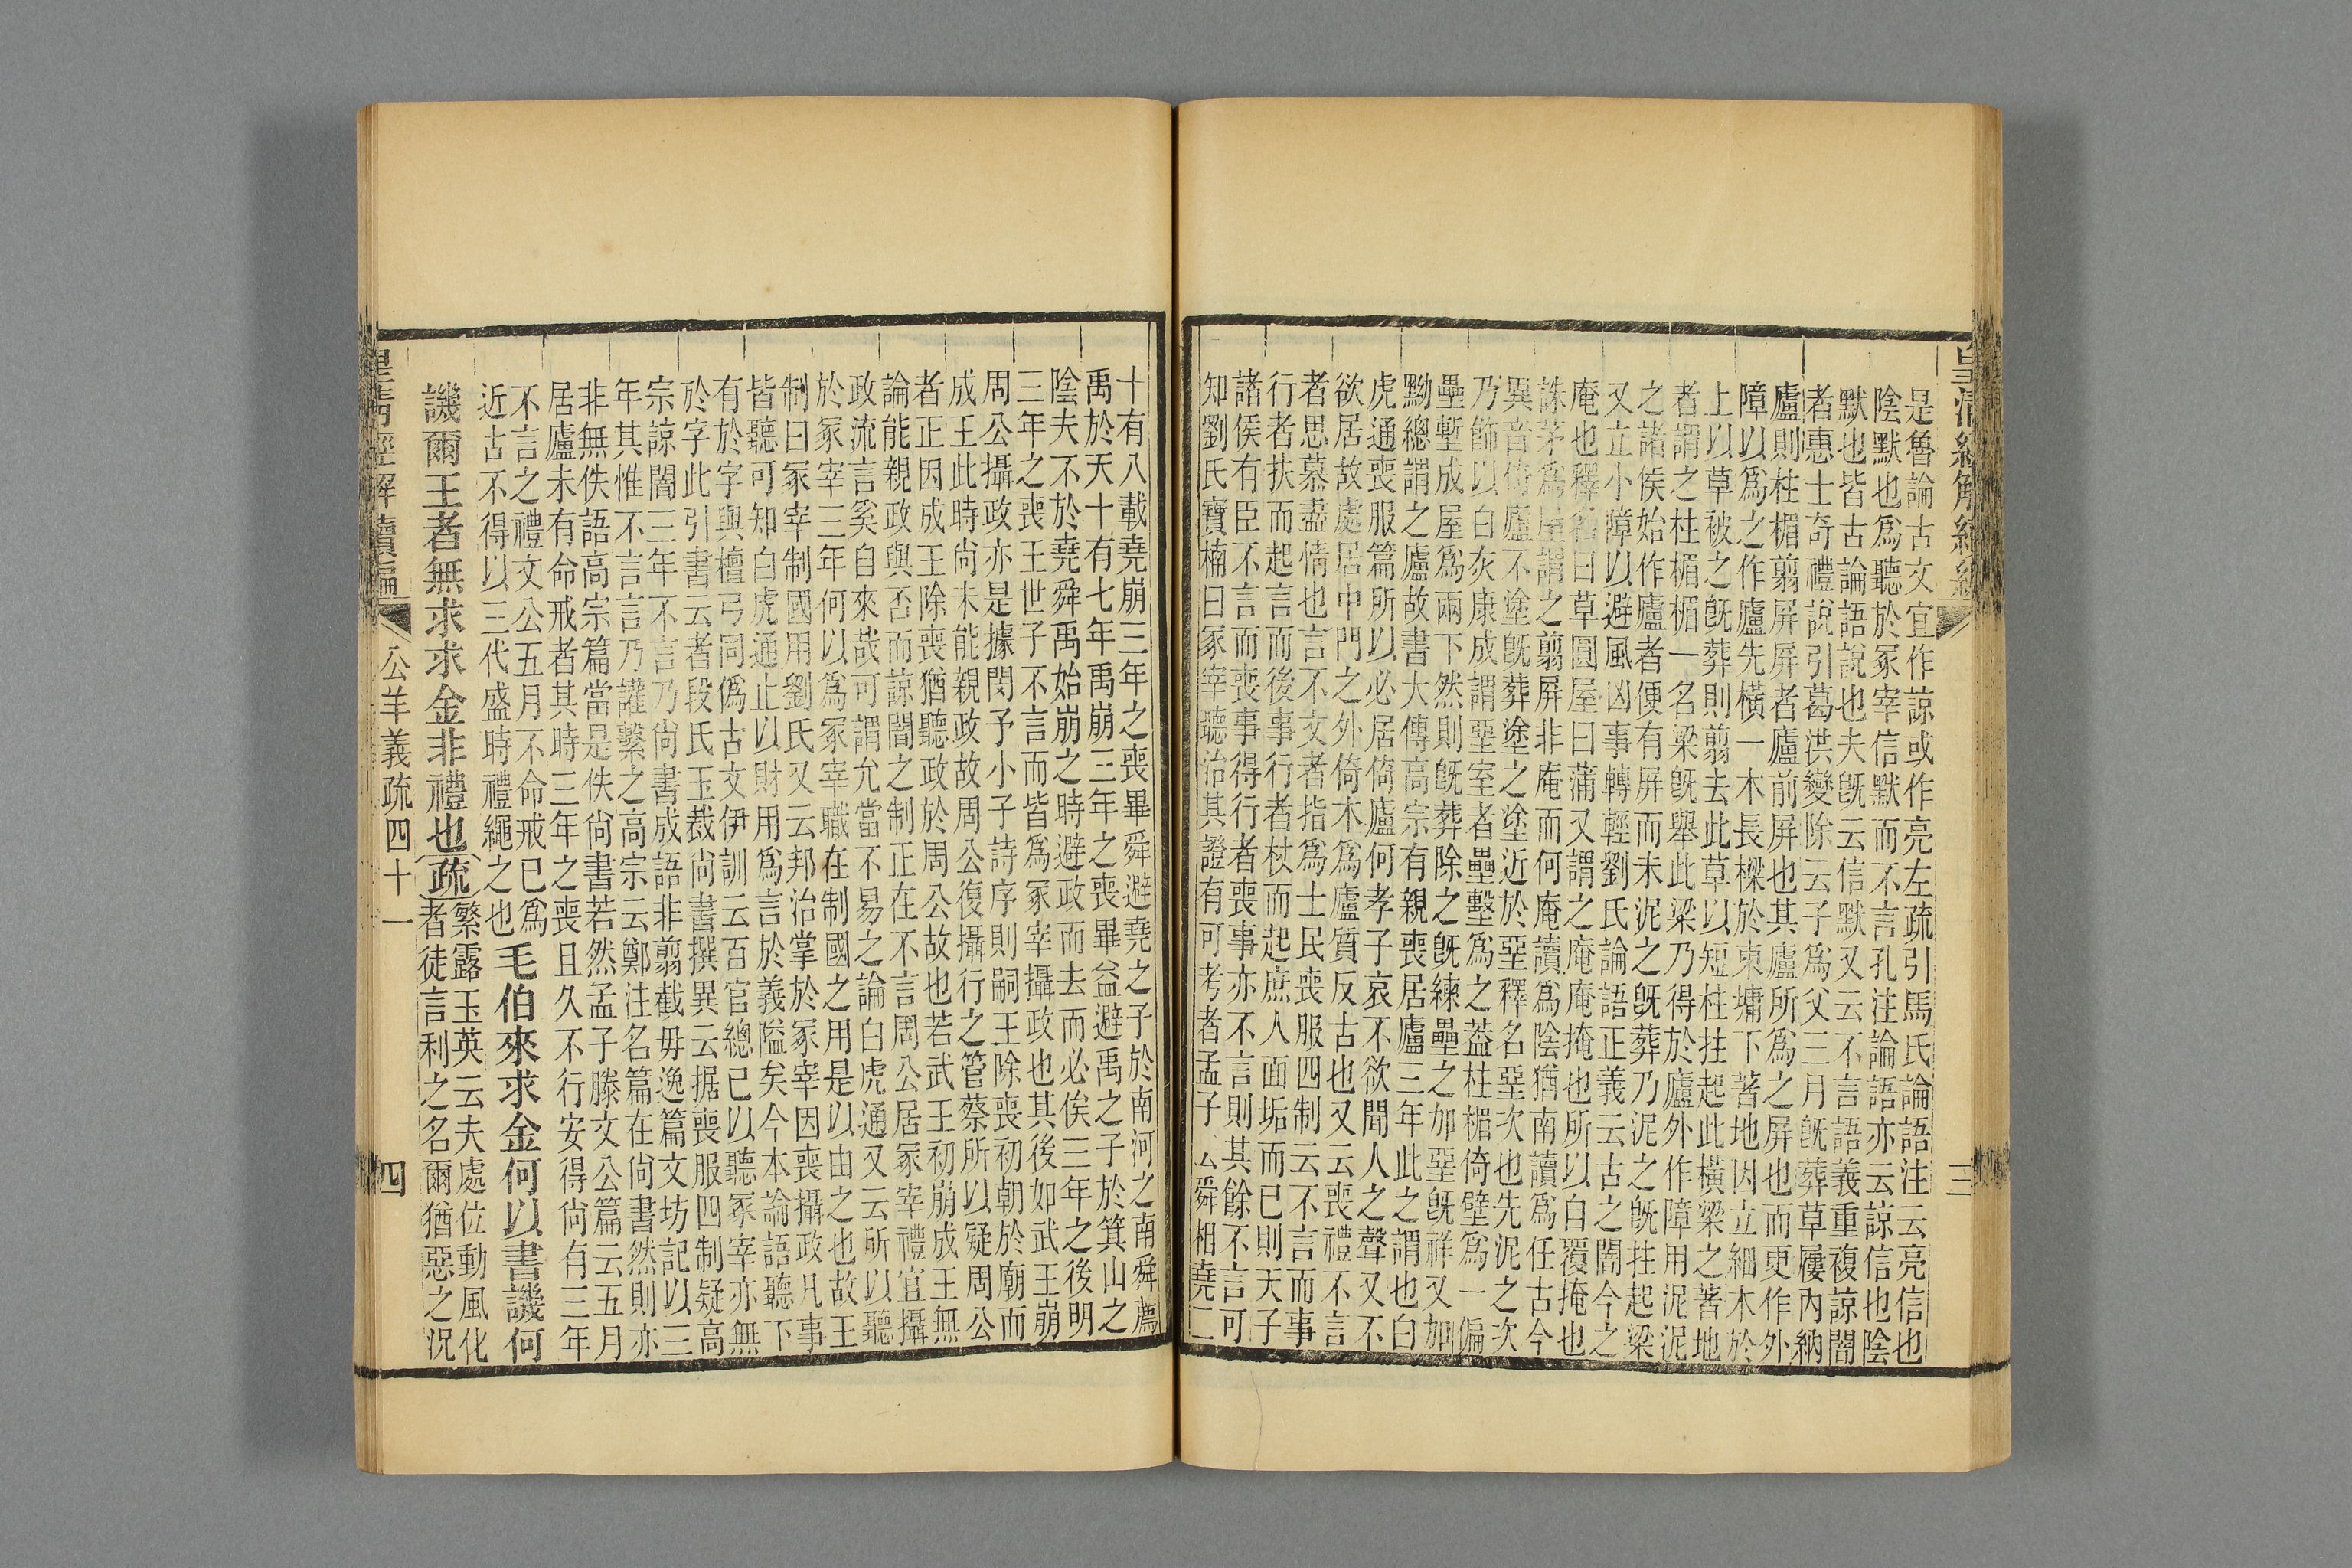 皇清經解續編
三
是魯論古文宜作諒或作亮左疏引馬氏論語注云亮信也
陰默也爲聽於冢宰信默而不言孔注論語亦云諒信也陰
默也皆古論語說也夫既云信默又云不言語義重複諒闇
者惠士奇禮說引葛洪變除云子爲父三月既葬草屨內納
廬則柱楣翦屏屏者廬前屏也其廬所爲之屏也而更作外
障以爲之作廬先橫一木長樑於東墉下著地因立細木於
上以草被之既葬則翦去此草以短柱拄起此橫梁之著地
者謂之柱楣楣一名梁既舉此梁乃得於廬外作障用泥泥
之諸侯始作廬者便有屏而未泥之既葬乃泥之既拄起梁
又立小障以避風凶事轉輕劉氏論語正義云古之闇今之
庵也釋名曰草圓屋曰蒲又謂之庵庵掩也所以自覆掩也
誅茅爲屋謂之翦屏非庵而何庵讀爲陰猶南讀爲任古今
異音倚廬不塗既葬塗之塗近於堊釋名堊次也先泥之次
乃飾以白灰康成謂堊室者壘墼爲之葢柱楣倚壁爲一偏
壘塹成屋爲兩下然則既葬除之既練壘之加堊既祥又加
黝總謂之廬故書大傳高宗有親喪居廬三年此之謂也白
虎通喪服篇所以必居倚廬何孝子哀不欲聞人之聲又不
欲居故處居中門之外倚木爲廬質反古也又云喪禮不言
者思慕盡情也言不文者指爲士民喪服四制云不言而事
行者扶而起言而後事行者杖而起庶人面垢而已則天子
諸侯有臣不言而喪事得行者喪事亦不言則其餘不言可
知劉氏寶楠曰冢宰聽治其證有可考者孟子云舜相堯二
十有八載堯崩三年之喪畢舜避堯之子於南河之南舜薦
禹於天十有七年禹崩三年之喪畢益避禹之子於箕山之
陰夫不於堯舜禹始崩之時避政而去而必俟三年之後明
三年之喪王世子不言而皆爲冢宰攝政也其後如武王崩
周公攝政亦是據閔予小子詩序則嗣王除喪初朝於廟而
成王此時尚未能親政故周公復攝行之管蔡所以疑周公
者正因成王除喪猶聽政於周公故也若武王初崩成王無
論能親政與否而諒闇之制正在不言周公居冢宰禮宜攝
政流言奚自來哉可謂允當不易之論白虎通又云所以聽
於冢宰三年何以爲冢宰職在制國之用是以由之也故王
制曰冢宰制國用劉氏又云邦治掌於冢宰因喪攝政凡事
皆聽可知白虎通止以財用爲言於義隘矣今本論語聽下
有於字與檀弓同僞古文伊訓云百官總已以聽冢宰亦無
於字此引書云者段氏玉裁尚書撰異云据喪服四制疑高
宗諒闇三年不言乃尚書成語非翦截毋逸篇文坊記以三
年其惟不言言乃讙繫之高宗云鄭注名篇在尚書然則亦
非無佚語高宗篇當是佚尚書若然孟子滕文公篇云五月
居廬未有命戒者其時三年之喪且久不行安得尚有三年
不言之禮文公五月不命戒已爲
近古不得以三代盛時禮繩之也
毛伯來求金何以書譏何
譏爾王者無求求金非禮也
疏
繁露玉英云夫處位動風化
者徒言利之名爾猶惡之況
皇清經解續編
公羊義疏四十一
四